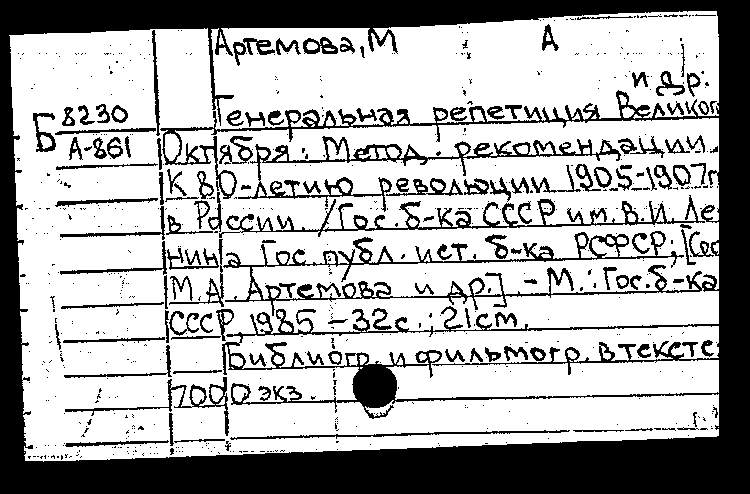 Артемова, М А
и др.
Б 8230 Генеральная репетиция Великог
А-861 Октября: Метод. рекомендации.
К 80-летию революции 1905-1907г
в России. /Гос. б-ка СССР им. В.И. Ле-
нина Гос. публ. ист. б-ка РСФСР; [Сос
М.А. Артемова и др.] - М.: Гос. б-ка
СССР, 1985 - 32с.; 21см.
Библиогр. и фильмогр. в тексте.
7000 экз.